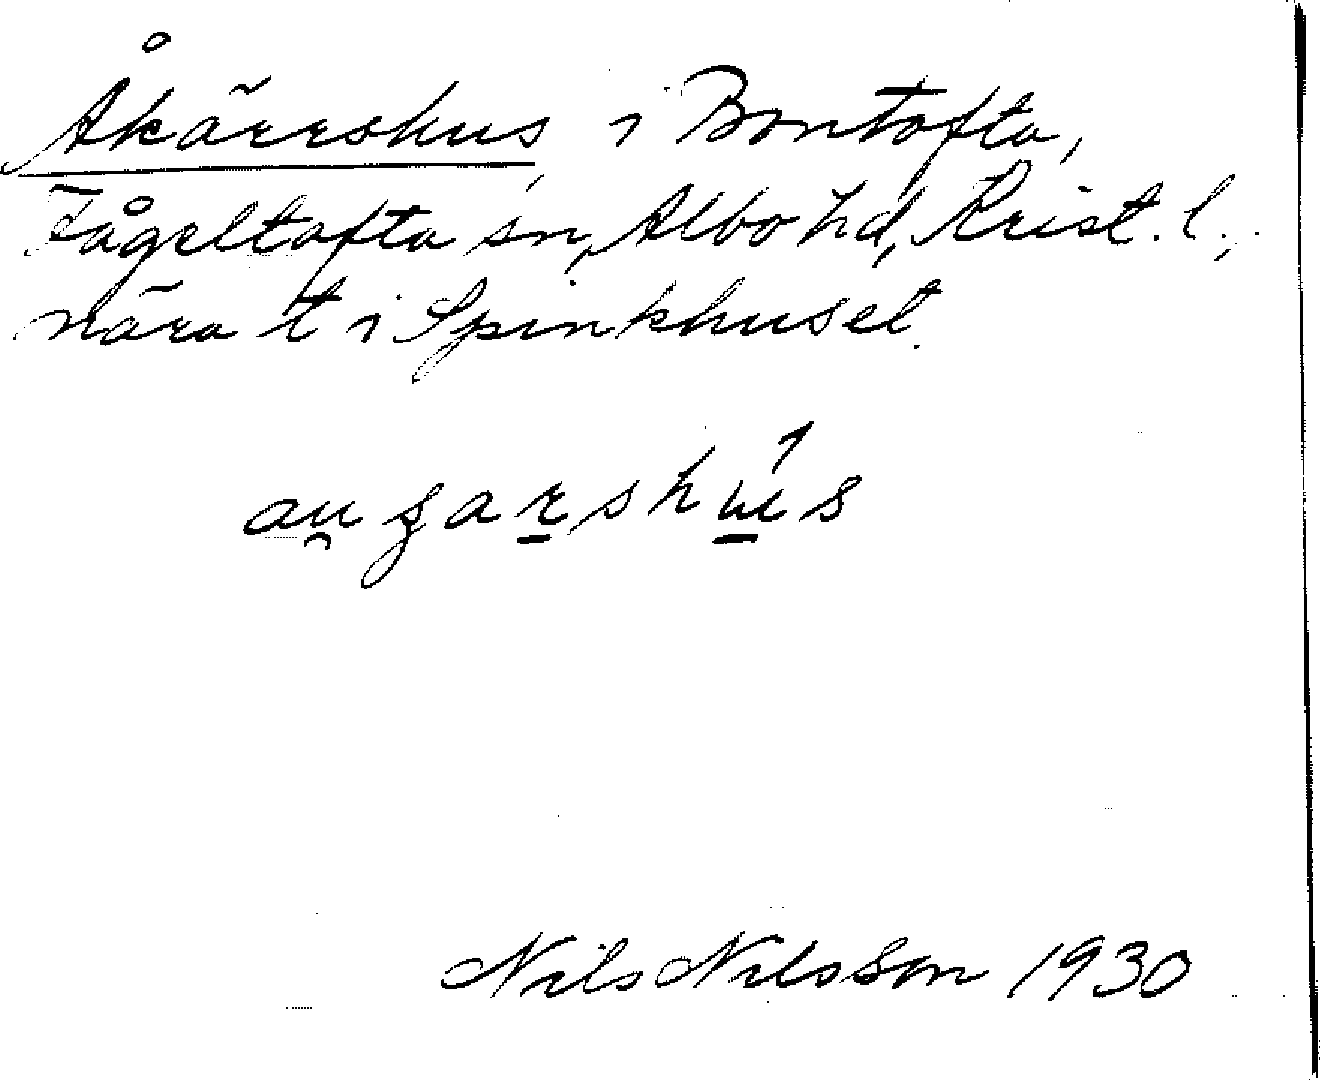 Åkärrshus i Bontofta,
Fågeltofta sn, Albo hd, Krist. l.,
nära t i Spinkhuset.
au̯garshús
Nils Nilsson 1930